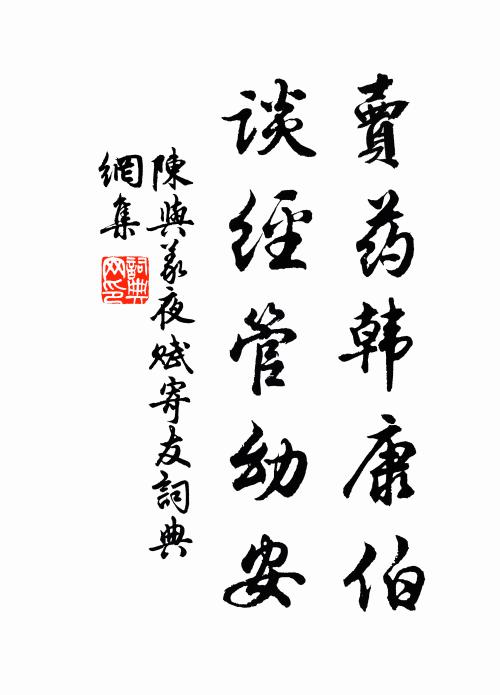 賣药韩康伯
谈經管幼安
陳與義夜赋寄友詞典
網集
詞典
网印